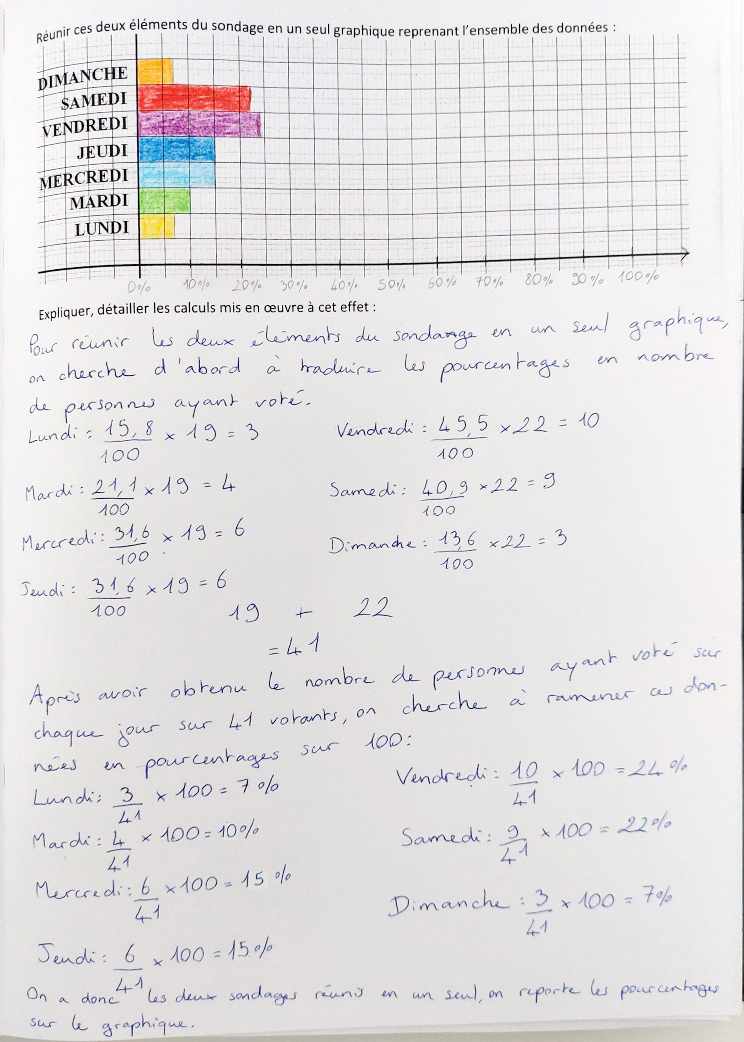 Réunir ces deux éléments du sondage en un seul graphique reprenant l'ensemble des données :
DIMANCHE
SAMEDI
VENDREDI
JEUDI
MERCREDI
MARDI
LUNDI
0% 10% 20% 30% 40% 50% 60% 70% 80% 90% 100%
Expliquer, détailler les calculs mis en œuvre à cet effet :
Pour réunir les deux éléments du sondange en un seul graphique,
on cherche d'abord à traduire les pourcentages en nombre
de personnes ayant voté.
Lundi : 15,8/100 × 19 = 3
Mardi : 21,1/100 × 19 = 4
Mercredi : 31,6/100 × 19 = 6
Jeudi : 31,6/100 × 19 = 6
Vendredi : 45,5/100 × 22 = 10
Samedi : 40,9/100 × 22 = 9
Dimanche : 13,6/100 × 22 = 3
19 + 22
= 41
Après avoir obtenu le nombre de personnes ayant voté sur
chaque jour sur 41 votants, on cherche à ramener ces don-
nées en pourcentages sur 100 :
Lundi : 3/41 × 100 = 7%
Mardi : 4/41 × 100 = 10%
Mercredi : 6/41 × 100 = 15 %
Jeudi : 6/41 × 100 = 15%
Vendredi : 10/41 × 100 = 24 %
Samedi : 9/41 × 100 = 22%
Dimanche : 3/41 × 100 = 7%
On a donc les deux sondages réunis en un seul, on reporte les pourcentages
sur le graphique.